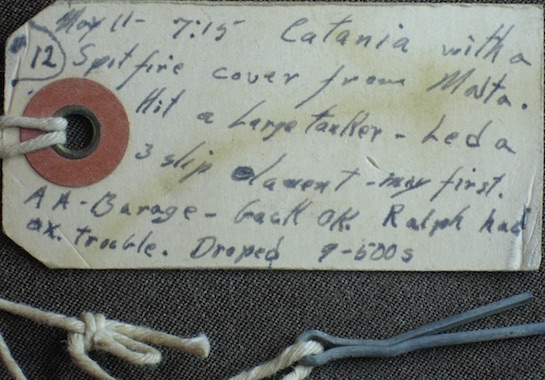 May 11 - 7:15 Catania with a
12 Spitfire cover from Malta.
Hit a Large tanker - Led a
3 ship element - my first.
AA - Barage - back OK. Ralph had
ox. trouble. Droped 9-500s